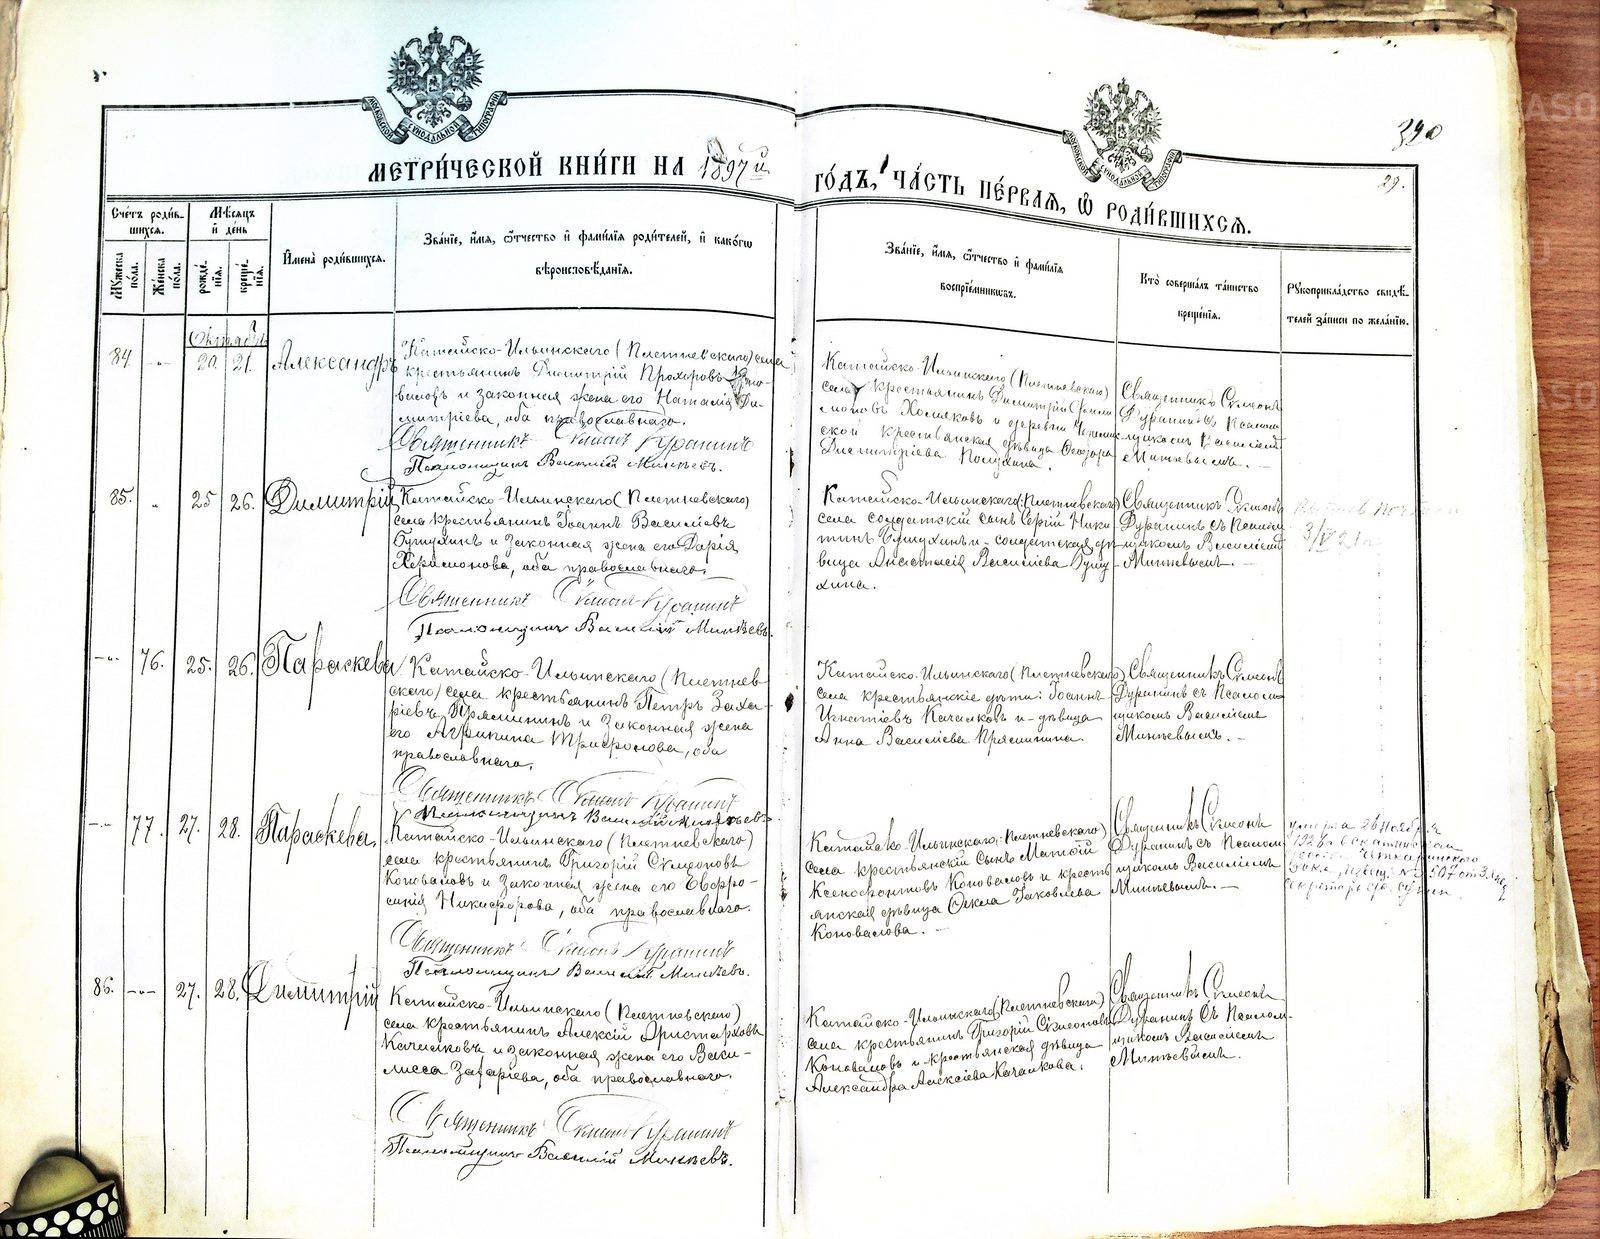 МЕТРИ́ЧЕСКОЙ КНИ́ГИ НА 1897й ГО́ДЪ, ЧА́СТЬ ПЕ́РВАѦ, Ѿ РОДИ́ВШИХСѦ.
390
29.
Сче́тъ роди́в-
шихсѧ.
Мꙋ́жеска по́ла.
Же́нска по́ла.
Мѣ́сяцъ и҆ де́нь
рожде́нїѧ.
креще́нїѧ.
И҆мена̀ роди́вшихсѧ.
Зва́нїе, и҆́мѧ, ѻ҆́тчество и҆ фами́лїѧ роди́телей, и҆ како́гѡ
вѣроисповѣ́данїѧ.
Зва́нїе, и҆́мѧ, ѻ҆́тчество и҆ фами́лїѧ
воспрїе́мникѡвъ.
Кто̀ соверша́лъ та́инство
креще́нїѧ.
Рꙋкоприкла́дство свидѣ́-
телей за́писи по жела́нїю.
Октябрь
84 20. 21. Александръ
Катайско-Ильинскаго (Плетневскаго) села
крестьянинъ Димитрій Прохоровъ
виловъ и законная жена его Наталія Ди-
митріева, оба православнаго.
Священникъ Симеонъ Дуранинъ
Псаломщикъ Василій Минѣевъ.
Катайско-Ильинскаго (Плетневскаго)
села крестьянинъ Димитрій
Холяковъ и деревни
ской крестьянская дѣвица Ѳеодора
Димитріева
Священникъ Симеонъ
Дуранинъ съ Псалом-
щикомъ Василіемъ
Минѣевымъ. –
85. 25 26. Димитрій
Катайско-Ильинскаго (Плетневскаго)
села крестьянинъ Іоаннъ Василіевъ
и законная жена его Дарія
оба православнаго.
Священникъ Симеонъ Дуранинъ
Псаломщикъ Василій Минѣевъ.
Катайско-Ильинскаго (Плетневскаго)
села солдатскій сынъ Сергій Ники-
тинъ и солдатская дѣ-
вица Анастасія Василіева
хина.
Священникъ Симеонъ
Дуранинъ съ Псалом-
щикомъ Василіемъ
Минѣевымъ. –
76. 25. 26. Параскева
Катайско-Ильинскаго (Плетнев-
скаго) села крестьянинъ Петръ Заха-
ріевъ Прямининъ и законная жена
его Агрипина Трифонова, оба
православнаго.
Священникъ Симеонъ Дуранинъ
Псаломщикъ Василій Минѣевъ
Катайско-Ильинскаго (Плетневскаго)
села крестьянскіе дѣти: Іоаннъ
Игнатіевъ Качалковъ и дѣвица
Анна Василіева Пряминина
Священникъ Симеонъ
Дуранинъ съ Псалом-
щикомъ Василіемъ
Минѣевымъ. –
77. 27. 28. Параскева.
Катайско-Ильинскаго (Плетневскаго)
села крестьянинъ Григорій Симеоновъ
Коноваловъ и законная жена его Евфро-
синія Никифорова, оба православнаго.
Священникъ Симеонъ Дуранинъ
Псаломщикъ Василій Минѣевъ.
Катайско-Ильинскаго (Плетневскаго)
села крестьянскій сынъ Матѳій
Ксенофонтовъ Коноваловъ и кресть-
янская дѣвица Ѳекла Іаковлева
Коновалова. –
Священникъ Симеонъ
Дуранинъ съ Псалом-
щикомъ Василіемъ
Минѣевымъ. –
умерла 26 Ноября
86. 27. 28. Димитрій
Катайско-Ильинскаго (Плетневскаго)
села крестьянинъ Алексій Аристарховъ
Качалковъ и законная жена его Васи-
лисса Захаріева, оба православнаго.
Священникъ Симеонъ Дуранинъ
Псаломщикъ Василій Минѣевъ.
Катайско-Ильинскаго (Плетневскаго)
села крестьянинъ Григорій Симеоновъ
Коноваловъ и крестьянская дѣвица
Александра Алексіева Качалкова.
Священникъ Симеонъ
Дуранинъ съ Псалом-
щикомъ Василіемъ
Минѣевымъ.